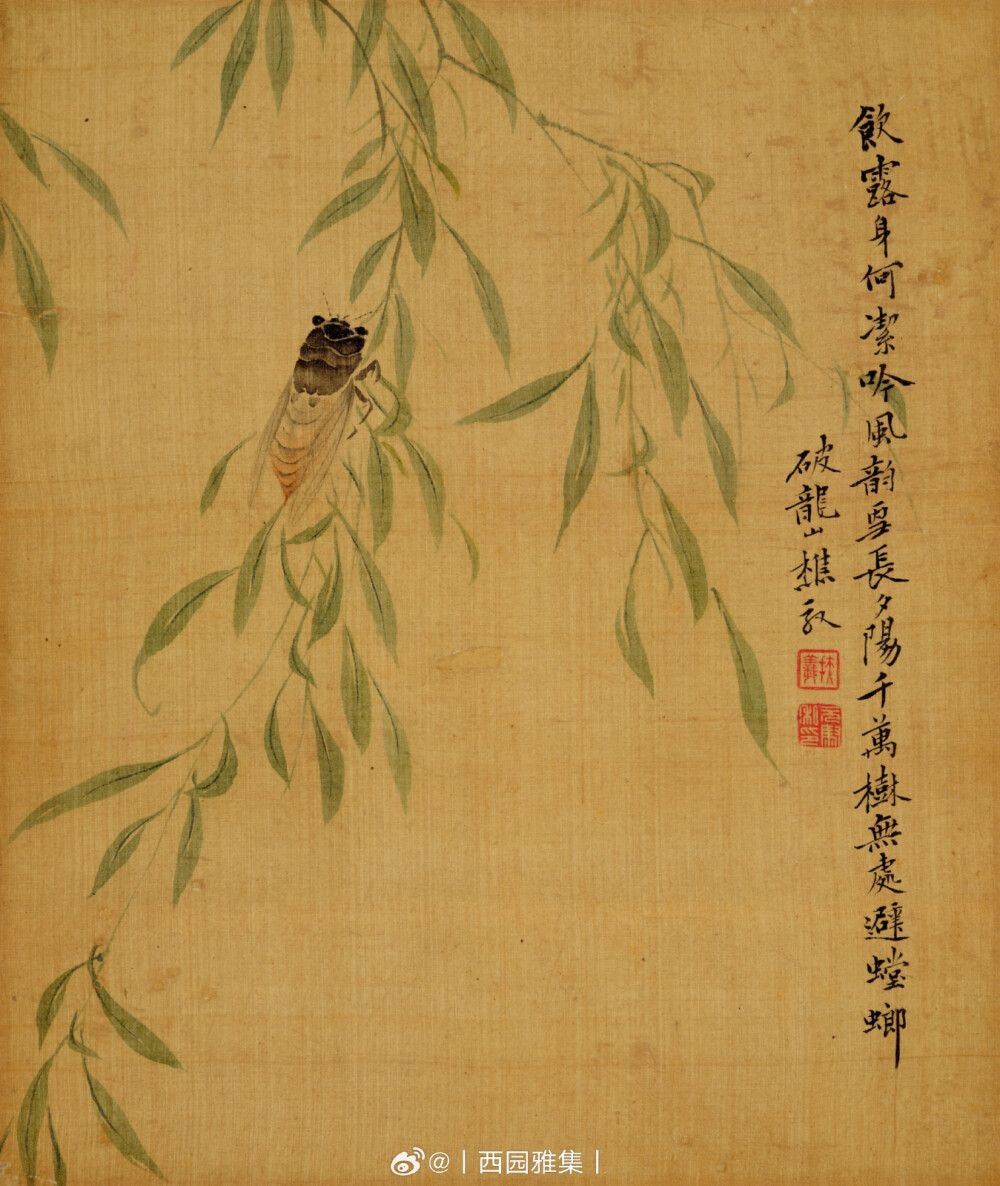 飲露身何潔吟風韻更長夕陽千萬樹無處避螳螂
破龍山樵
扶羲
元馭私印
@丨西园雅集丨